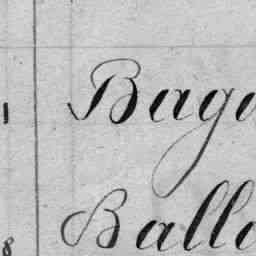 1 Baga
8 Balla